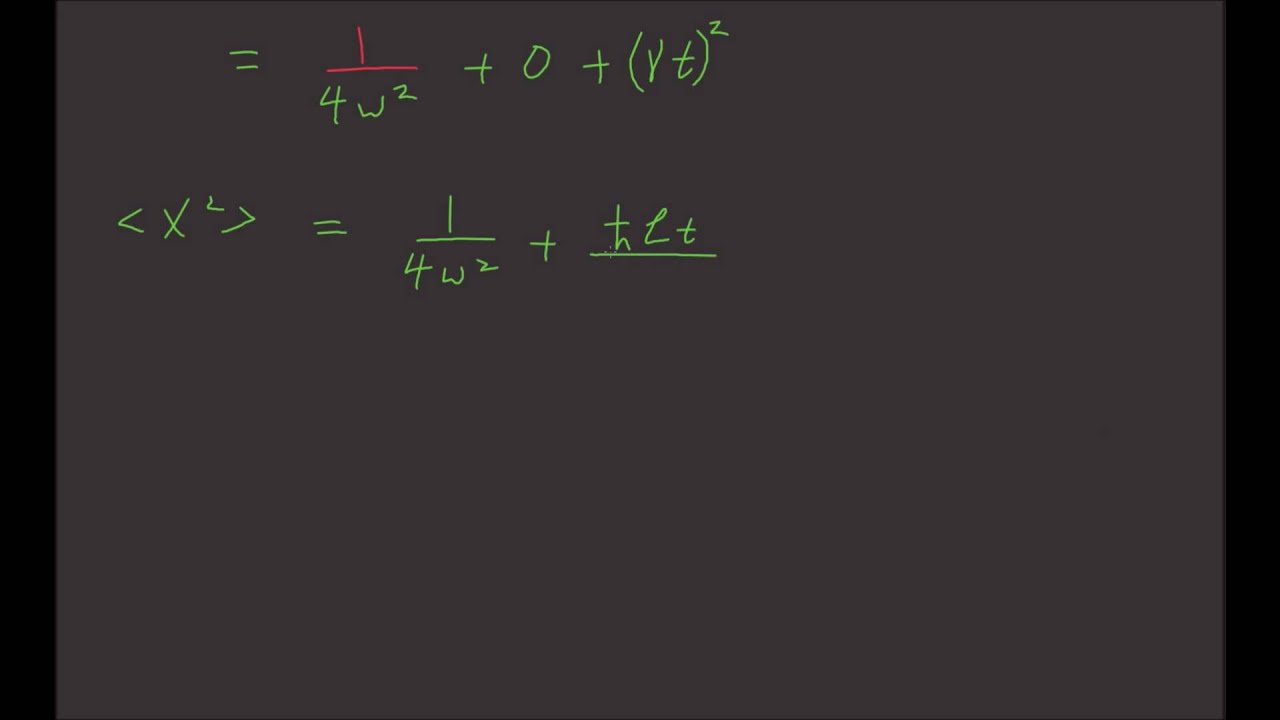 = 1/4w² + 0 + (γt)²
<x²> = 1/4w² + ħlt